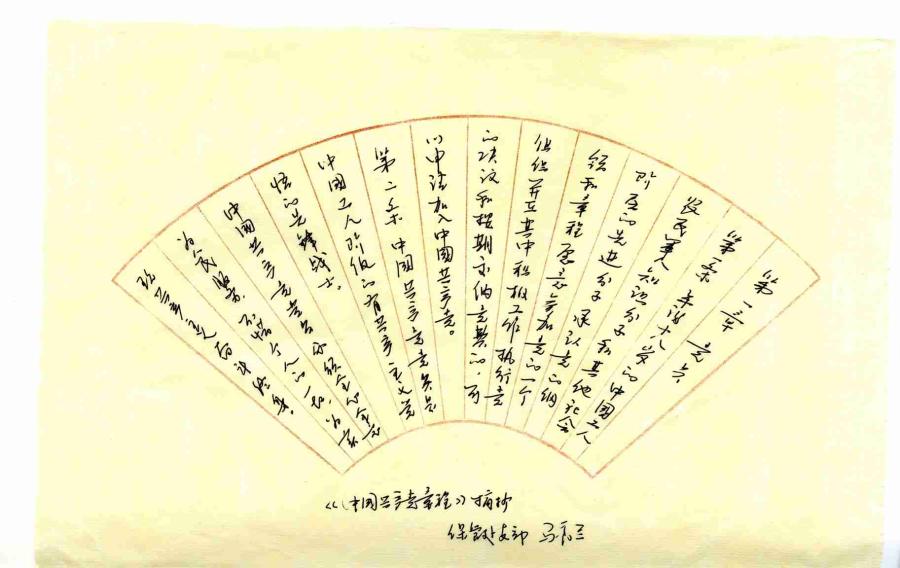 第一章 党员
第一条 年满十八岁的中国工人
农民军人知识分子和其他社会
阶层的先进分子承认党的纲
领和章程愿意参加党的一个
组织并在其中积极工作执行党
的决议和按期交纳党费的，可
以申请加入中国共产党。
第二条 中国共产党党员是
中国工人阶级的有共产主义觉
悟的先锋战士。
中国共产党党员必须全心全意
为人民服务，不惜牺牲个人的一切，为实
现共产主义奋斗终身。
《中国共产党章程》摘抄
支部 马